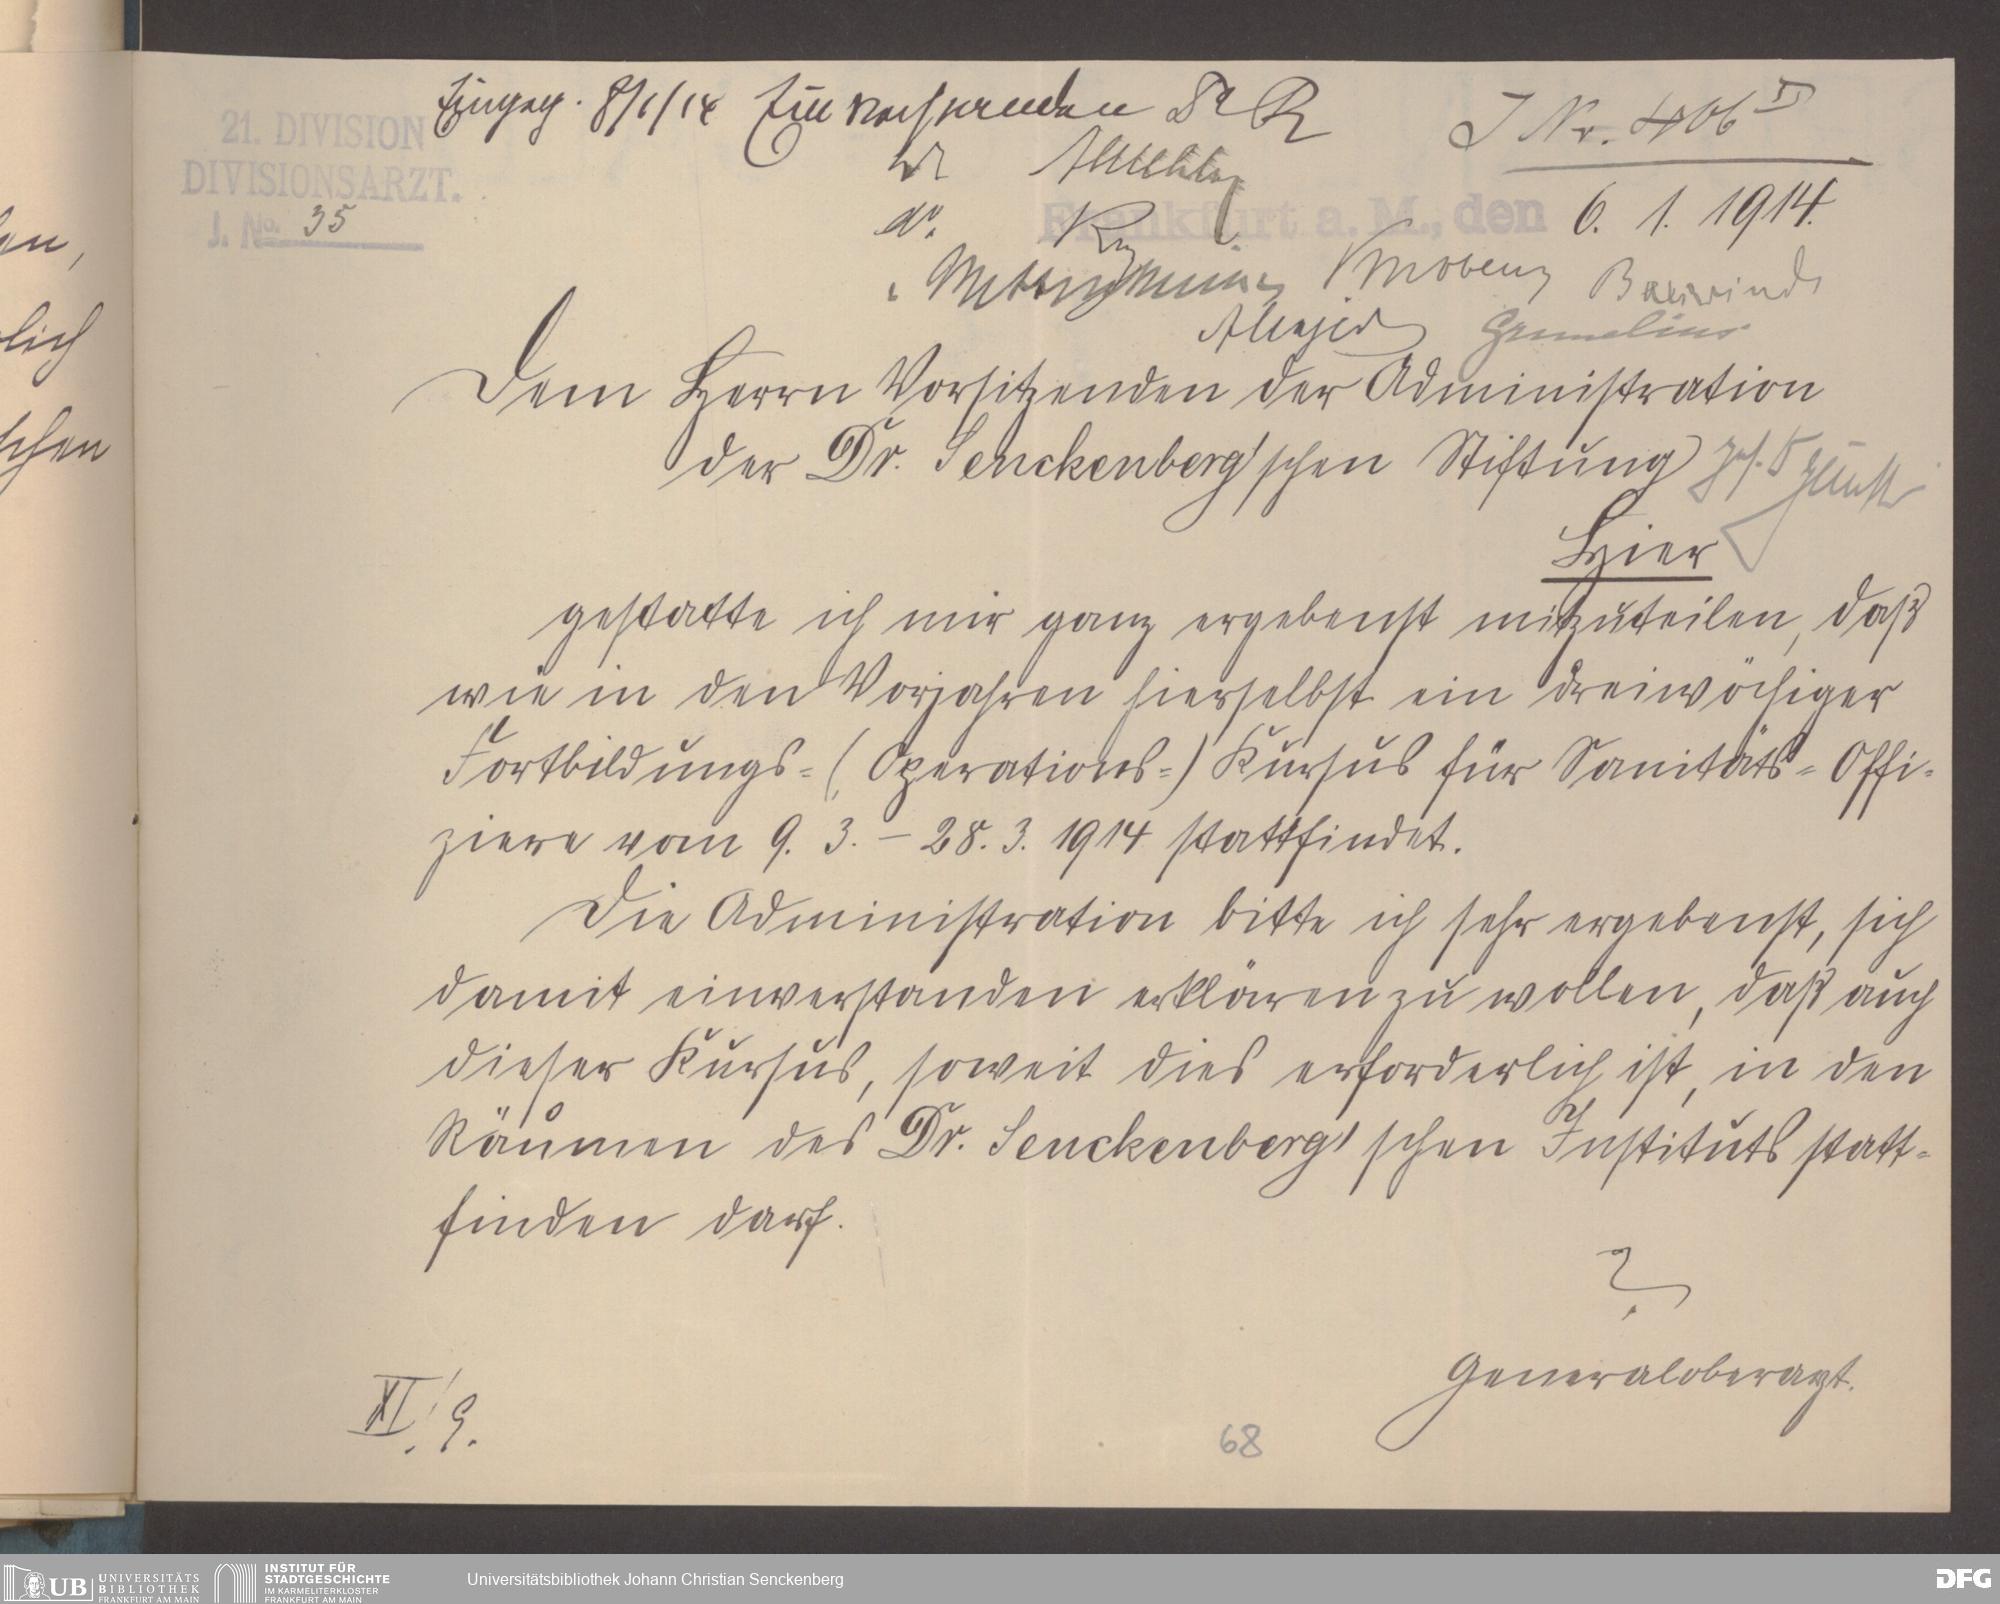 Eingeg. 8/1/14
J Nr. 406 II
21. DIVISION
DIVISIONSARZT.
J. No. 35
Frankfurt a. M., den 6. 1. 1914.
Dem Herrn Vorsitzenden der Administration
der Dr. Senckenberg'schen Stiftung
Hier
gestatte ich mir ganz ergebenst mitzuteilen, daß
wie in den Vorjahren hierselbst ein dreiwöchiger
Fortbildungs-(Operations-) Kursus für Sanitäts-Offi-
ziere vom 9. 3. – 28. 3. 1914 stattfindet.
Die Administration bitte ich sehr ergebenst, sich
damit einverstanden erklären zu wollen, daß auch
dieser Kursus, soweit dies erforderlich ist, in den
Räumen des Dr. Senckenberg'schen Instituts statt-
finden darf.
Generaloberarzt.
XI. 9.
68
UB UNIVERSITÄTS
BIBLIOTHEK
FRANKFURT AM MAIN
INSTITUT FÜR
STADTGESCHICHTE
IM KARMELITERKLOSTER
FRANKFURT AM MAIN
Universitätsbibliothek Johann Christian Senckenberg
DFG